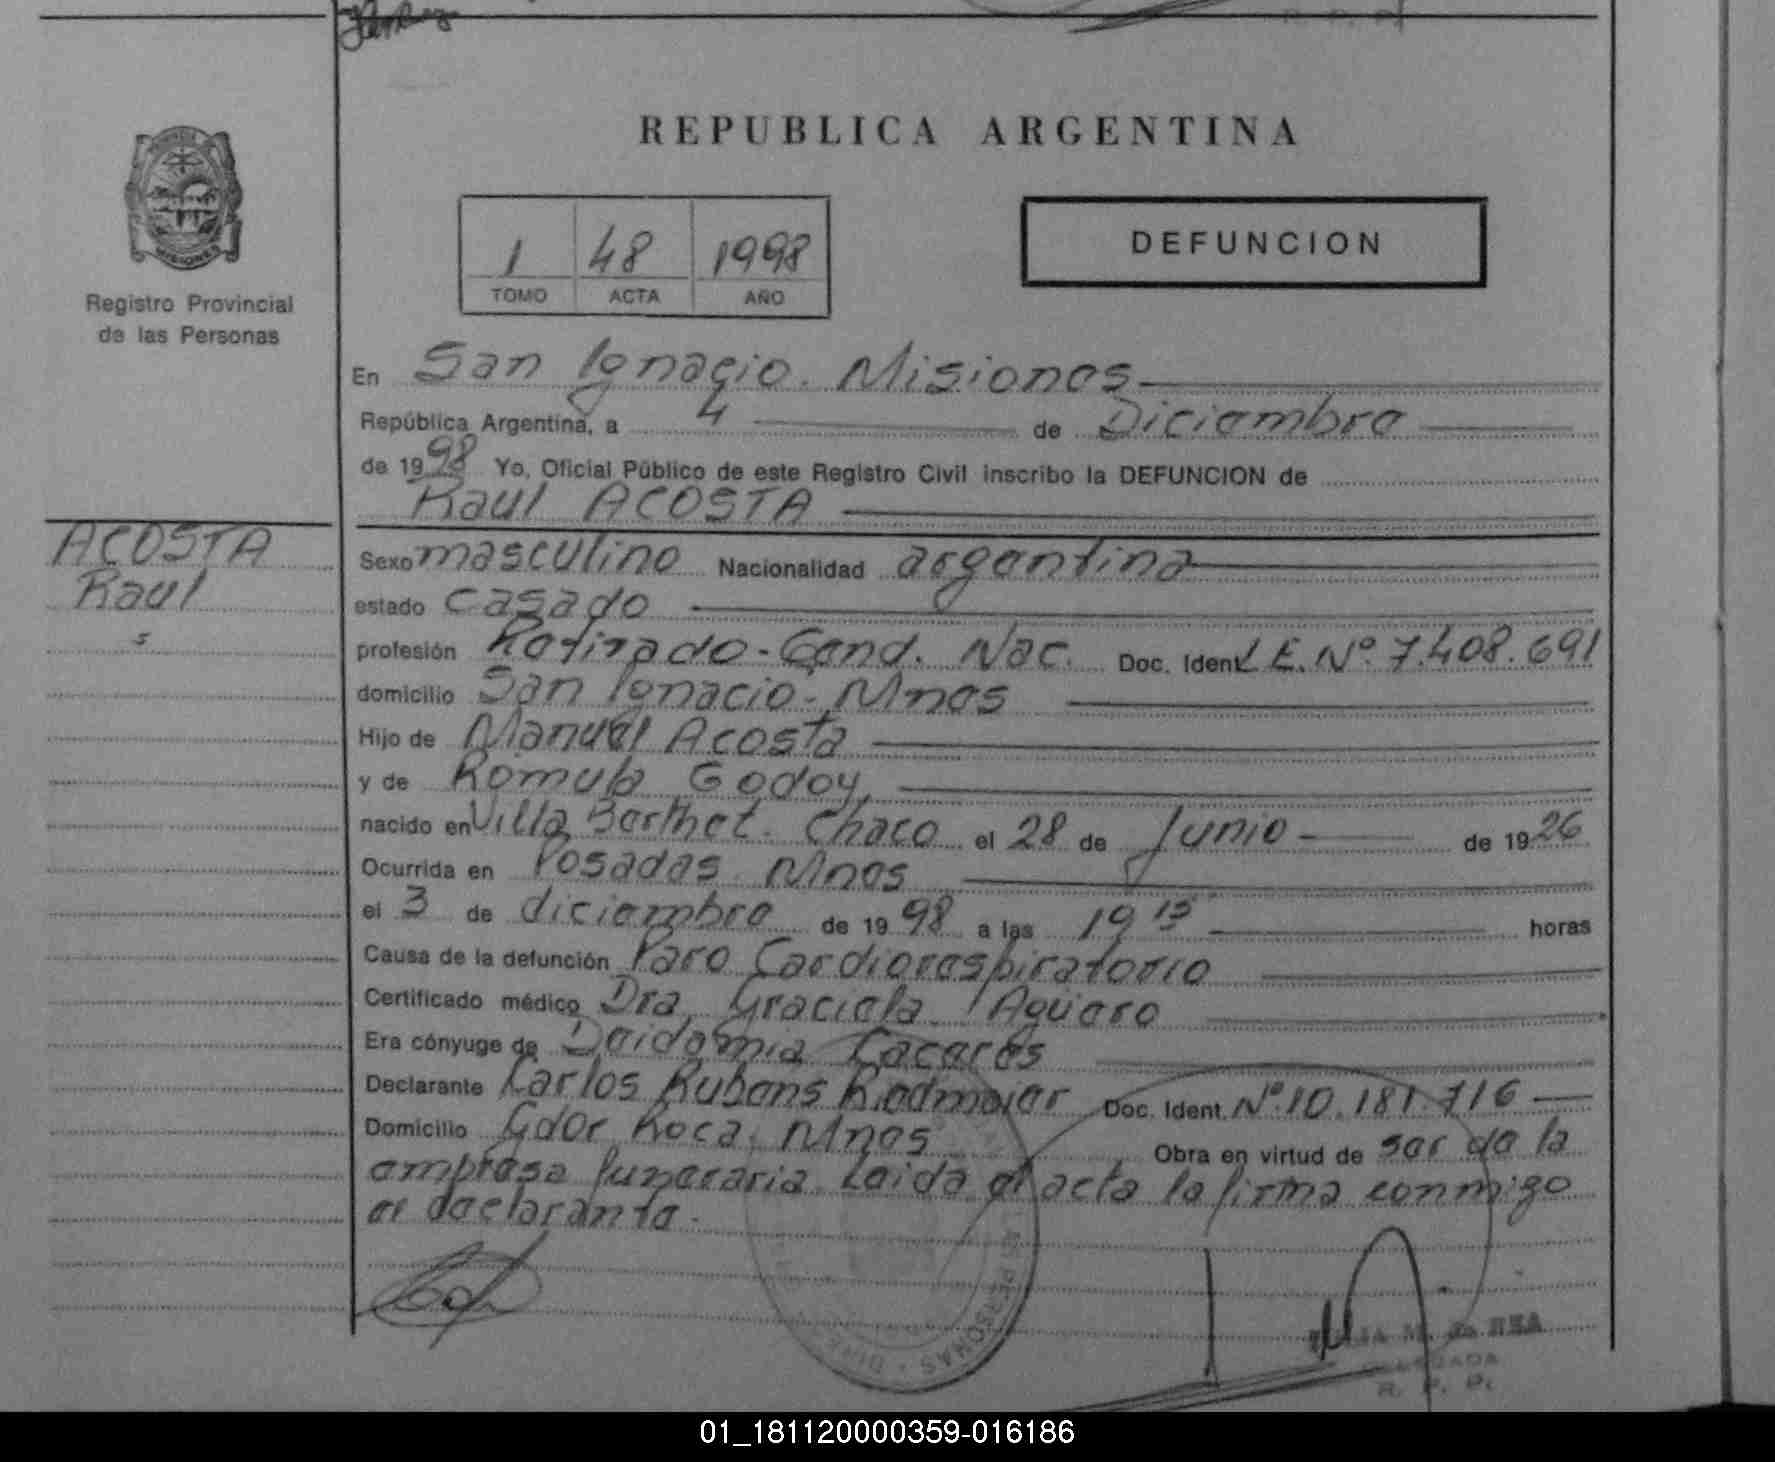 REPUBLICA ARGENTINA
PROVINCIA
MISIONES
Registro Provincial
de las Personas
1 48 1998
TOMO ACTA AÑO
DEFUNCION
En San Ignacio. Misiones
República Argentina, a 4 de Diciembre
de 1998 Yo, Oficial Público de este Registro Civil inscribo la DEFUNCION de
Raul ACOSTA
ACOSTA
Raul
s
Sexo masculino Nacionalidad argentina
estado casado
profesión Retirado - Gend. Nac. Doc. Ident. L.E. Nº. 7.408.691
domicilio San Ignacio - Mnes
Hijo de Manuel Acosta
y de Romula Godoy
nacido en Villa Berthet. Chaco el 28 de Junio de 1926
Ocurrida en Posadas Mnes
el 3 de diciembre de 1998 a las 19 15 horas
Causa de la defunción Paro Cardiorespiratorio
Certificado médico Dra. Graciela Agüero
Era cónyuge de Deidamia Caceres
Declarante Carlos Rubens Riedmaier Doc. Ident. Nº. 10.181.716
Domicilio Gdor Roca. Mnes Obra en virtud de ser de la
empresa funeraria. Leida el acta la firma conmigo
el declarante.
PERSONAS
M. DA REA
DELEGADA
R. P. P.
01_181120000359-016186